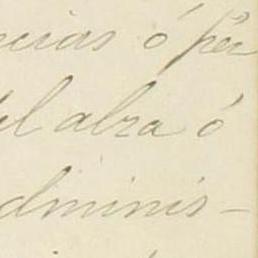 ncias ó per
el alza ó
dminis-